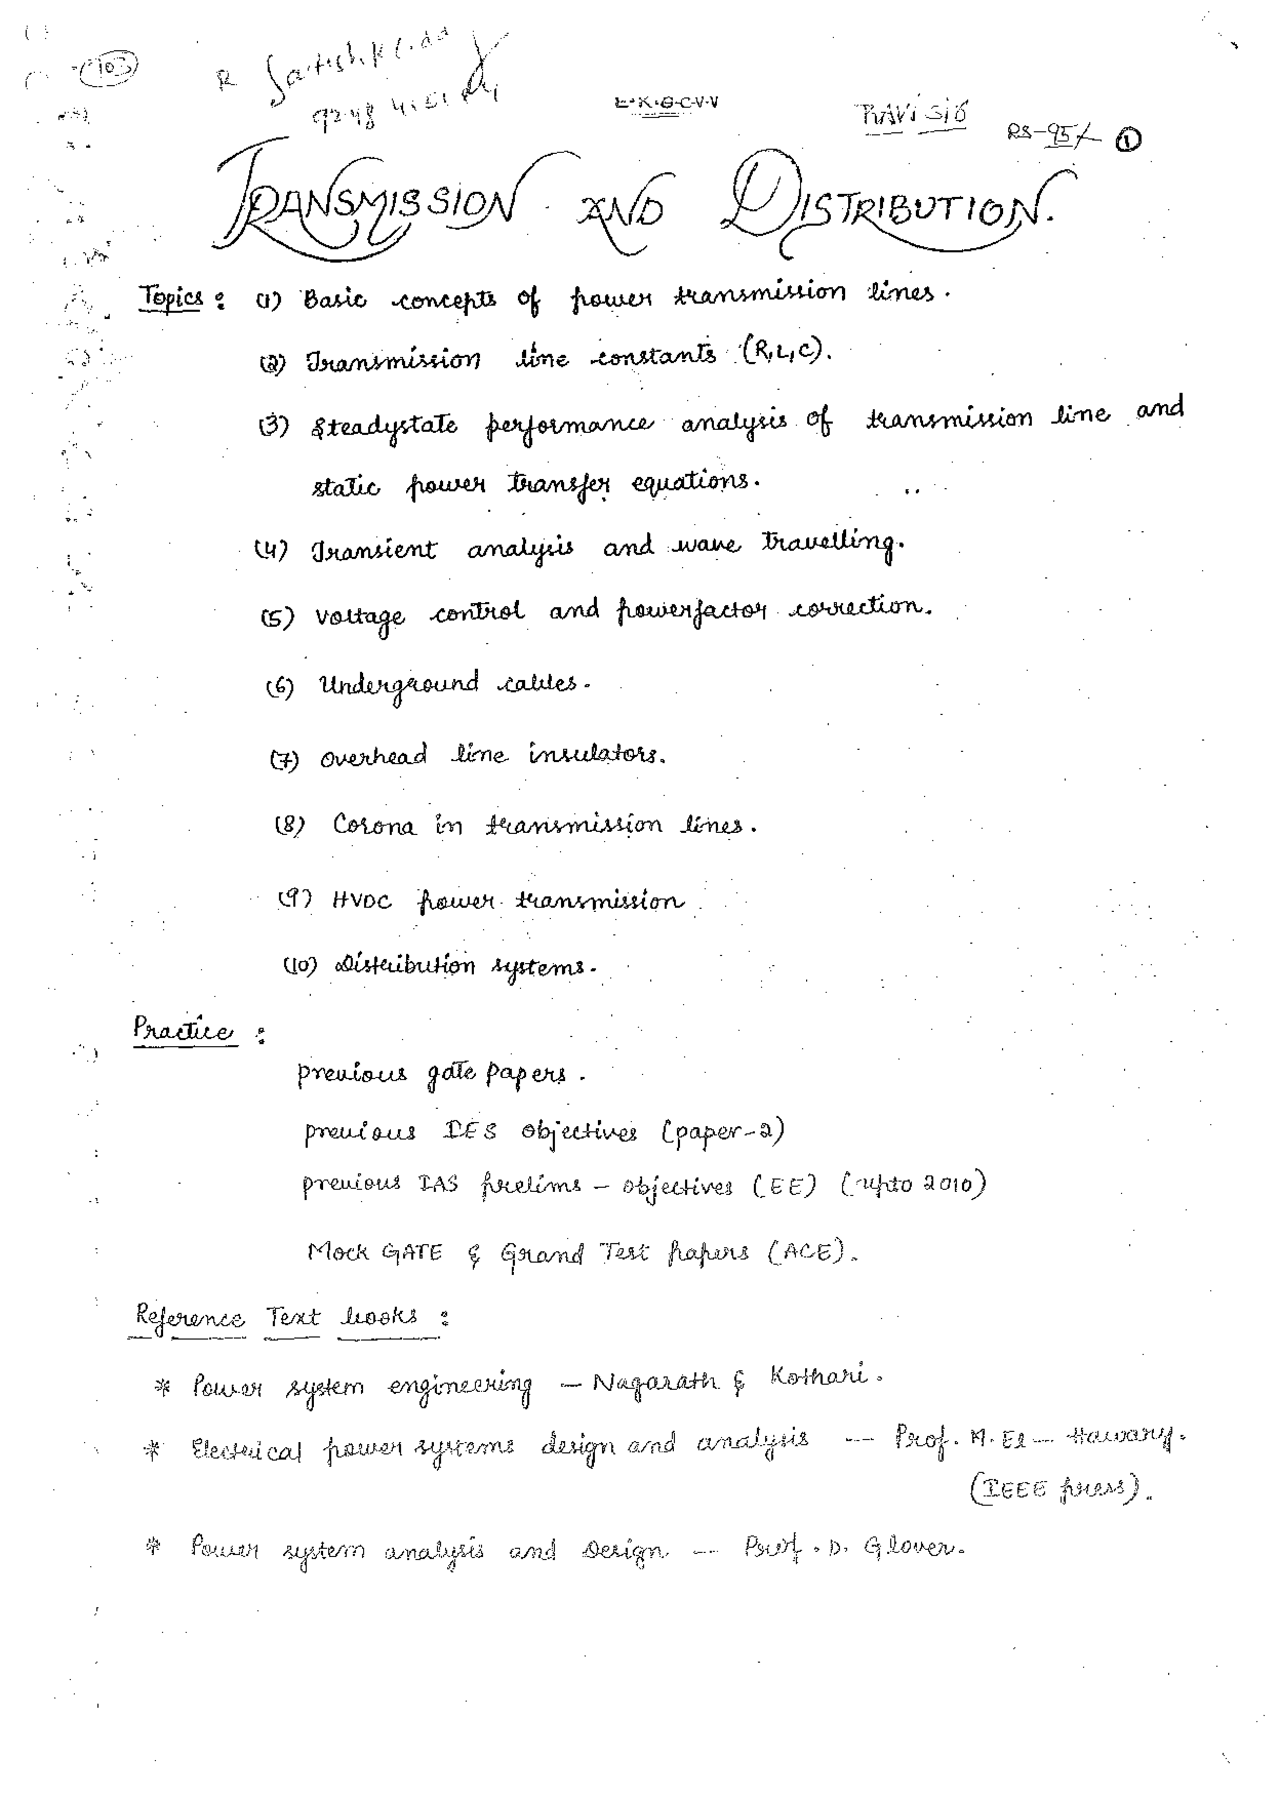 103
R Satish K
L.K.G.C.V.V
RAVI SIR
RS-95/-
1
TRANSMISSION AND DISTRIBUTION.
Topics : (1) Basic concepts of power transmission lines.
(2) Transmission line constants (R,L,C).
(3) Steadystate performance analysis of transmission line and
static power transfer equations.
(4) Transient analysis and wave travelling.
(5) Voltage control and powerfactor correction.
(6) Underground cables.
(7) Overhead line insulators.
(8) Corona in transmission lines.
(9) HVDC power transmission
(10) Distribution systems.
Practice :
previous gate papers.
previous IES objectives (paper-2)
previous IAS prelims - objectives (EE) (upto 2010)
Mock GATE & Grand Test papers (ACE).
Reference Text books :
* Power system engineering - Nagarath & Kothari.
* Electrical power systems design and analysis -- Prof. M. El - Hawary.
(IEEE press).
* Power system analysis and Design -- Prof. D. Glover.